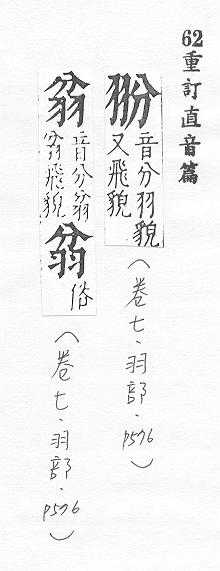 62重訂直音篇
翂音分羽貌
又飛貌
(卷七.羽部.p576)
音分
飛貌
俗
(卷七.羽部.p576)